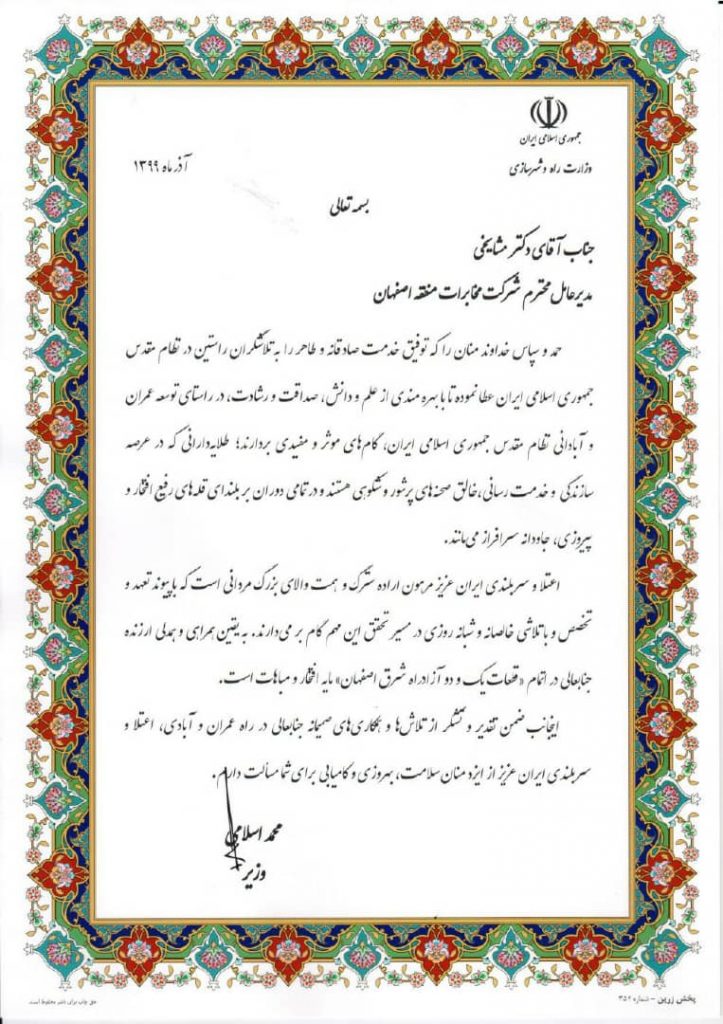 جمهوری اسلامی ایران
وزارت راه و شهرسازی
آذر ماه ۱۳۹۹
بسمه تعالی
جناب آقای دکتر مشایخی
مدیرعامل محترم شرکت مخابرات منطقه اصفهان
حمد و سپاس خداوند منان را که توفیق خدمت صادقانه و طاهر را به تلاشگران راستین در نظام مقدس
جمهوری اسلامی ایران عطا نموده تا با بهره مندی از علم و دانش، صداقت و رشادت، در راستای توسعه عمران
و آبادانی نظام مقدس جمهوری اسلامی ایران، گام‌های موثر و مفیدی بردارند؛ طلایه‌دارانی که در عرصه
سازندگی و خدمت رسانی، خالق صحنه‌های پرشور و شکوهی هستند و در تمامی دوران بر بلندای قله‌های رفیع افتخار و
پیروزی، جاودانه سرافراز می‌مانند.
اعتلا و سربلندی ایران عزیز مرهون اراده سترگ و همت والای بزرگ مردانی است که با پیوند تعهد و
تخصص و با تلاشی خالصانه و شبانه روزی در مسیر تحقق این مهم گام بر می‌دارند. به یقین همراهی و همدلی ارزنده
جنابعالی در اتمام «قطعات یک و دو آزادراه شرق اصفهان» مایه افتخار و مباهات است.
اینجانب ضمن تقدیر و تشکر از تلاش‌ها و همکاری‌های صمیمانه جنابعالی در راه عمران و آبادی، اعتلا و
سربلندی ایران عزیز از ایزد منان سلامت، بهروزی و کامیابی برای شما مسألت دارم.
محمد اسلامی
وزیر
پخش زرین – شماره ۳۵۲
حق چاپ برای ناشر محفوظ است.